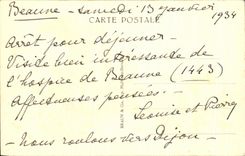 Beaune - samedi 13 janvier
1934
CARTE POSTALE
Arrêt pour déjeuner
Visite bien intéressante de
l'hospice de Beaune (1443)
Affectueuses pensées.
Léonise et Pierre
- Nous roulons vers Dijon -